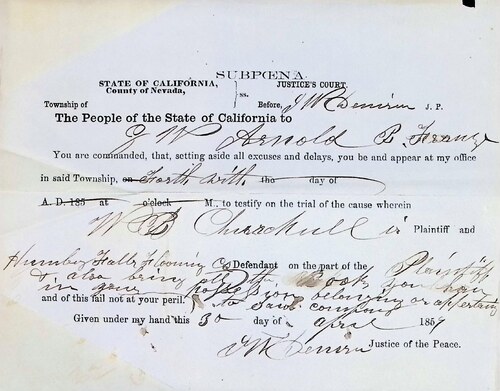 SUBPŒNA
STATE OF CALIFORNIA, } ss. JUSTICE'S COURT,
County of Nevada,
Township of Before, J W J. P.
The People of the State of California to
J W Arnold P. Franz
You are commanded, that, setting aside all excuses and delays, you be and appear at my office
in said Township, on Forth with the day of
A. D. 185 at o'clock M., to testify on the trial of the cause wherein
W B is Plaintiff and
Falls Co Defendant on the part of the Plaintiff
& also bring Books you have
in your possession belonging or appertaining
and of this fail not at your peril. to said company
Given under my hand this 30 day of april 1857
J W Justice of the Peace.